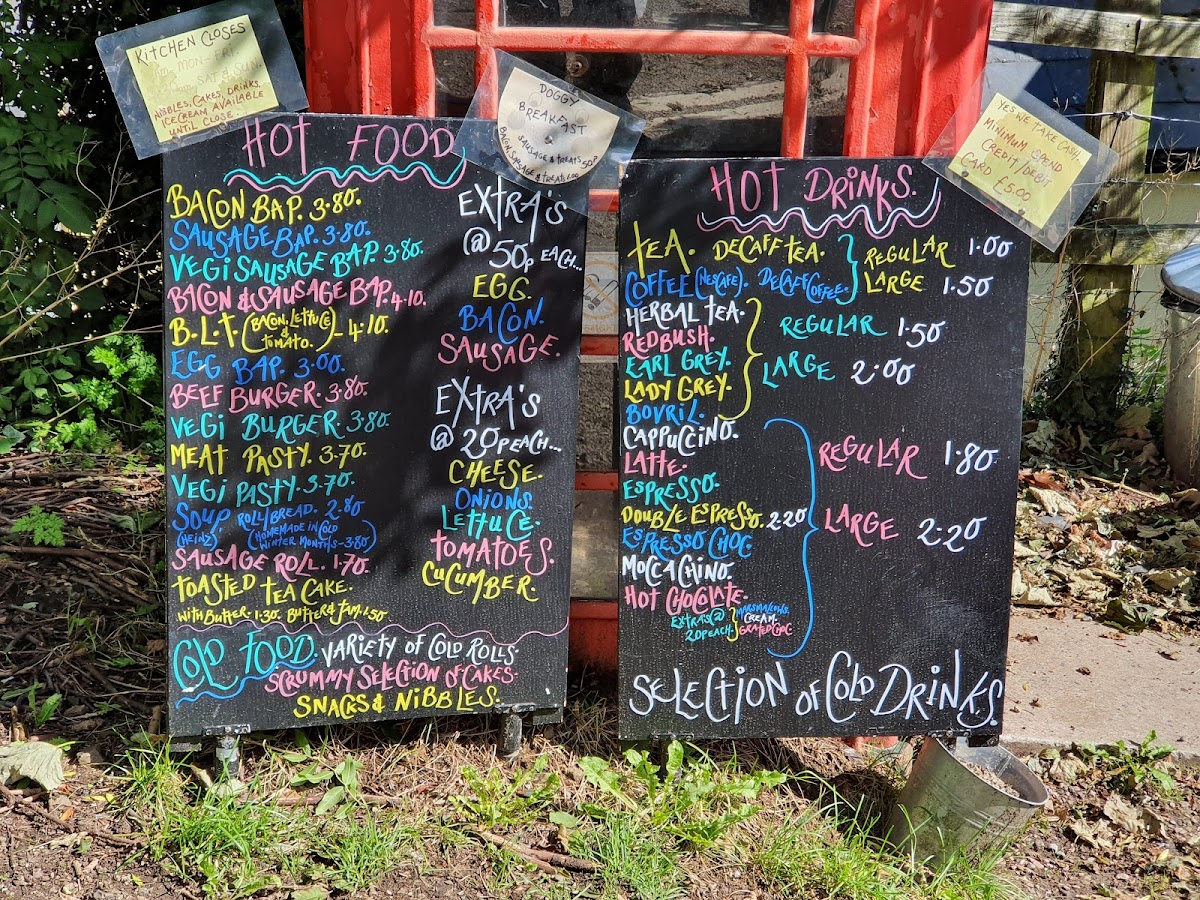 KITCHEN CLOSES
MON-FRI
SAT & SUN
NIBBLES, CAKES, DRINKS,
ICECREAM AVAILABLE
UNTIL CLOSE.
DOGGY
BREAKFAST
&
SAUSAGE & TREATS 50P
BACON, SAUSAGE & TREATS 1.00
YES WE TAKE CASH.
MINIMUM SPEND
CREDIT/DEBIT
CARD £5.00
HOT FOOD
BACON BAP. 3.80.
SAUSAGE BAP. 3.80.
VEGI SAUSAGE BAP. 3.80.
BACON & SAUSAGE BAP. 4.10.
B.L.T. (BACON, LETTUCE & TOMATO.) - 4.10.
EGG BAP. 3.00.
BEEF BURGER. 3.80.
VEGI BURGER 3.80.
MEAT PASTY. 3.70.
VEGI PASTY. 3.70.
SOUP ROLL/BREAD. 2.80
(HEINZ) (HOMEMADE IN COLD
WINTER MONTHS - 3.80)
SAUSAGE ROLL. 1.70.
TOASTED TEA CAKE.
WITH BUTTER. 1.30. BUTTER & JAM. 1.50
EXTRA'S
@ 50p EACH...
EGG.
BACON.
SAUSAGE.
EXTRA'S
@ 20P EACH...
CHEESE.
ONIONS.
LETTUCE.
TOMATOES.
CUCUMBER.
COLD FOOD. VARIETY OF COLD ROLLS.
SCRUMMY SELECTION OF CAKES.
SNACKS & NIBBLES.
HOT DRINKS.
TEA. DECAFF TEA. REGULAR 1.00
COFFEE (NESCAFE). DECAFF COFFEE. LARGE 1.50
HERBAL TEA.
REDBUSH.
EARL GREY.
LADY GREY.
BOVRIL.
REGULAR 1.50
LARGE 2.00
CAPPUCCINO.
LATTE.
ESPRESSO.
DOUBLE ESPRESSO. 2.20
ESPRESSO CHOC
MOCCACHINO.
HOT CHOCOLATE.
EXTRA'S @ 20P EACH. MARSHMALLOWS.
CREAM.
GRATED CHOC.
REGULAR 1.80
LARGE 2.20
SELECTION OF COLD DRINKS.